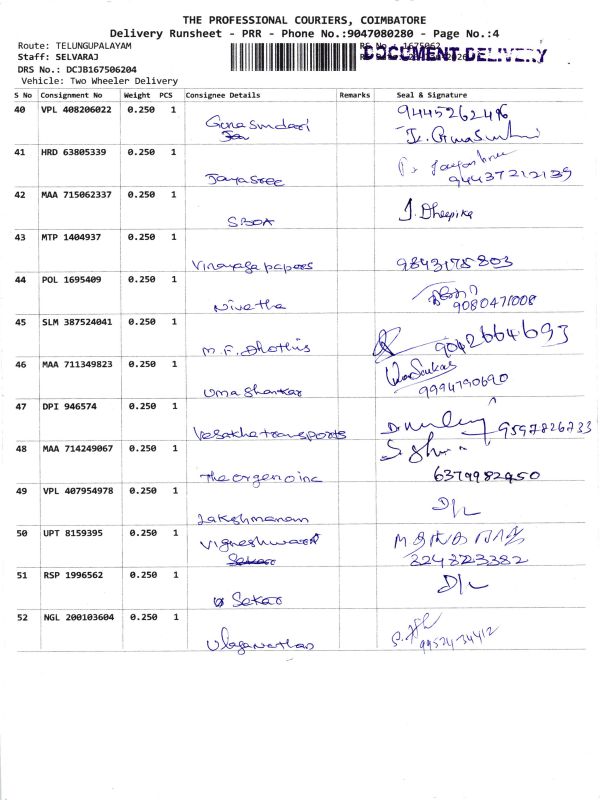 THE PROFESSIONAL COURIERS, COIMBATORE
Delivery Runsheet - PRR - Phone No.:9047080280 - Page No.:4
Route: TELUNGUPALAYAM
Staff: SELVARAJ
DOCUMENT DELIVERY
DRS No.: DCJB167506204
Vehicle: Two Wheeler Delivery
S No Consignment No Weight PCS Consignee Details Remarks Seal & Signature
40 VPL 408206022 0.250 1 Gunasundari 9445262496
41 HRD 63805339 0.250 1 Jayasree 94437212139
42 MAA 715062337 0.250 1 SBOA J. Dheepika
43 MTP 1404937 0.250 1 Vinayaga papers 9843175803
44 POL 1695409 0.250 1 Nivetha 9080471008
45 SLM 387524041 0.250 1 M.F. Dhothis 9042664693
46 MAA 711349823 0.250 1 Uma Shankar 9994790690
47 DPI 946574 0.250 1 Vesakha transports 9597826733
48 MAA 714249067 0.250 1 The orgeno inc 6379982950
49 VPL 407954978 0.250 1 Lakshmanan D/L
50 UPT 8159395 0.250 1 Vigneshwara 824823382
51 RSP 1996562 0.250 1 Sekar D/L
52 NGL 200103604 0.250 1 Ulaganathan 9952434412